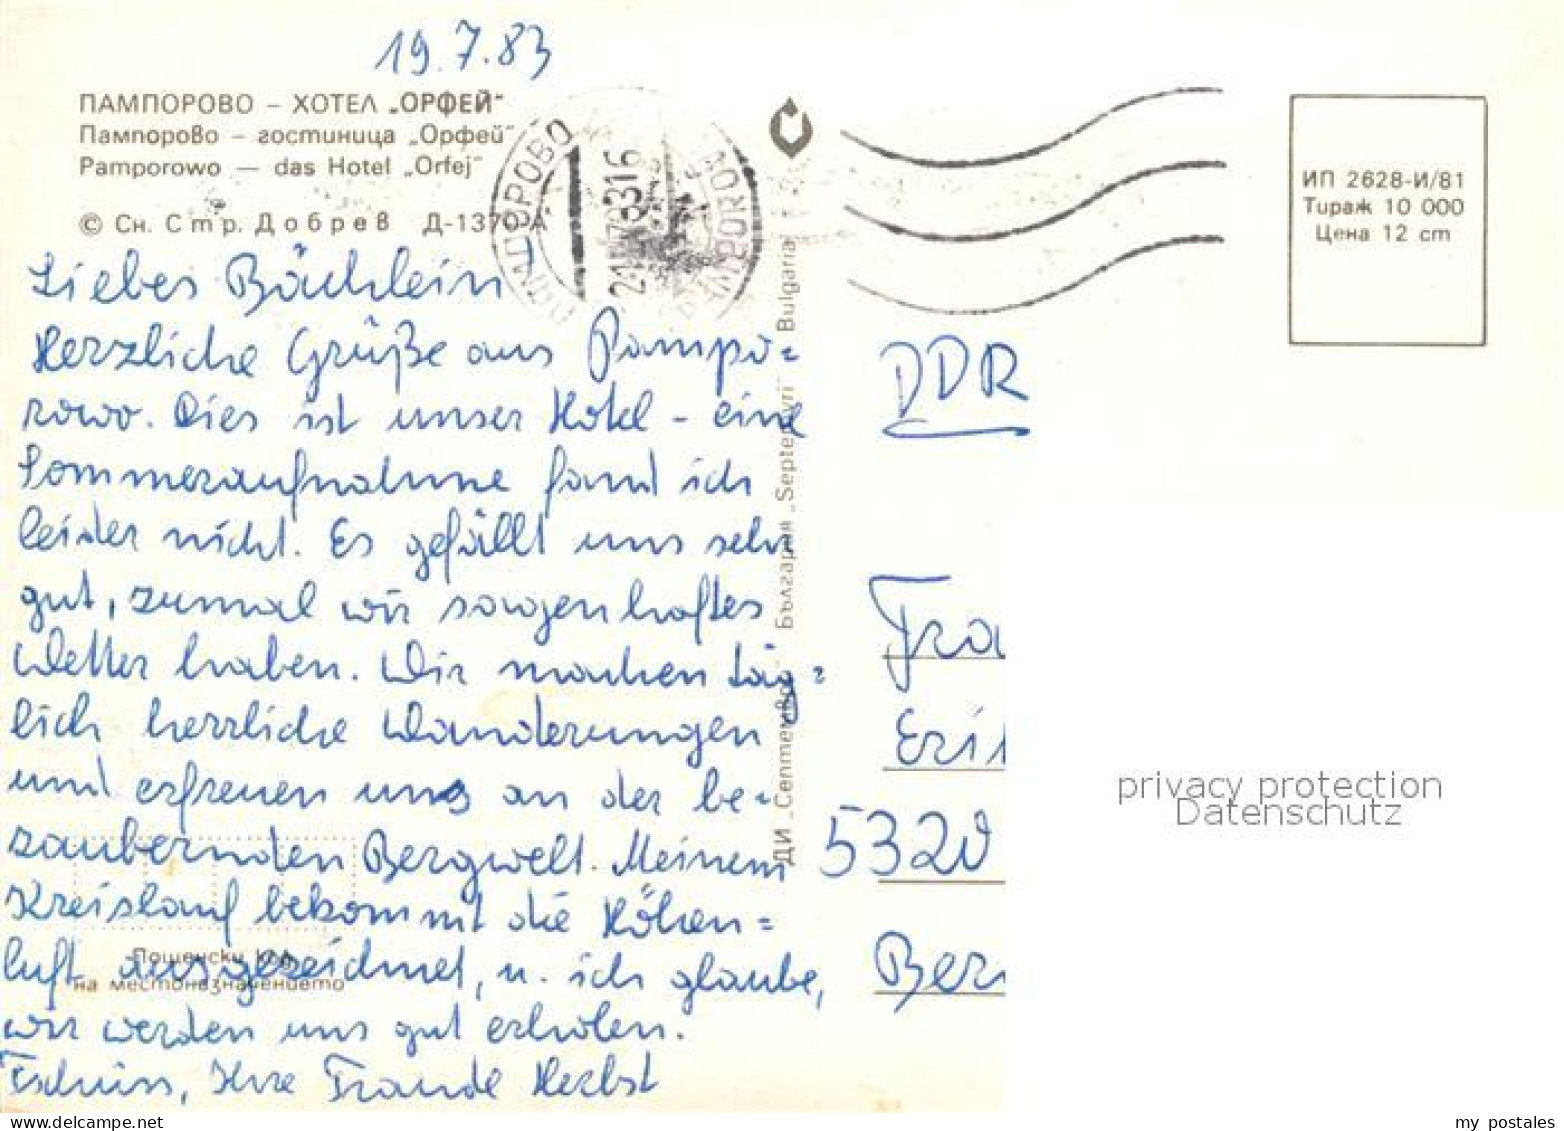 19.7.83
ПАМПОРОВО – ХОТЕЛ „ОРФЕЙ"
Пампорово – гостиница „Орфей"
Pamporowo — das Hotel „Orfej"
© Сн. Стр. Добрев Д-1370-А
ИП 2628-И/81
Тираж 10 000
Цена 12 ст
ПАМПОРОВО
Liebes Bächlein
Herzliche Grüße aus Pampo=
rowo. Dies ist unser Hotel - eine
Sommeraufnahme fand ich
leider nicht. Es gefällt uns sehr
gut, zumal wir sagenhaftes
Wetter haben. Wir machen täg=
lich herrliche Wanderungen
und erfreuen uns an der be-
zaubernden Bergwelt. Meinem
Kreislauf bekommt die Höhen=
luft ausgezeichnet, u. ich glaube,
wir werden uns gut erholen.
Tschüss, Ihre Traude Herbst
Пощенски код
на местоназначението
ДИ „Септември" – България „Septemvri" Bulgaria
DDR
Fra
Eri
5320
Ber
privacy protection
Datenschutz
my postales